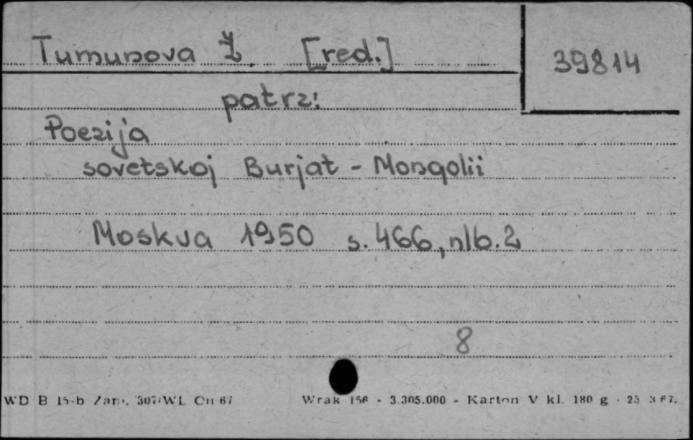 Tumunova Ž. [red.]
39814
patrz:
Poezija
sovetskoj Burjat - Mongolii
Moskva 1950 s. 466, nlb. 2
8
WD B 15-b Zam. 307/WL Cn 67
Wrak 156 - 3.305.000 - Karton V kl. 180 g - 23 3 67.